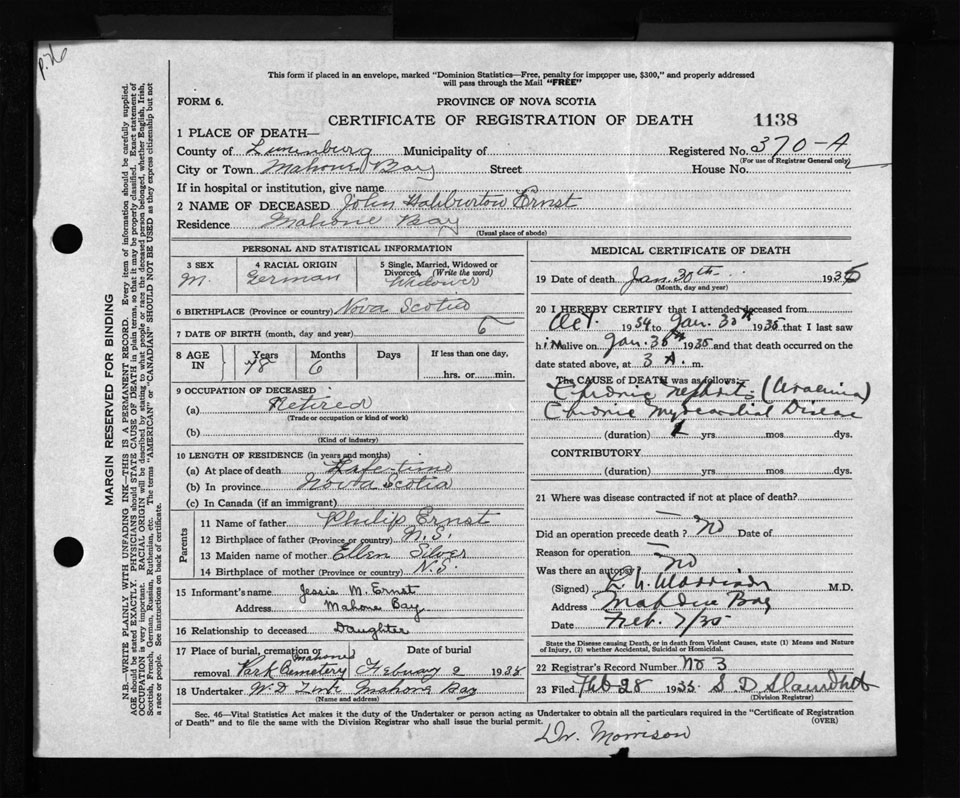 P. 76
This form if placed in an envelope, marked "Dominion Statistics—Free, penalty for improper use, $300," and properly addressed
will pass through the Mail "FREE"
FORM 6.
PROVINCE OF NOVA SCOTIA
CERTIFICATE OF REGISTRATION OF DEATH
1138
1 PLACE OF DEATH—
County of Lunenburg Municipality of Registered No. 370-A
(For use of Registrar General only)
City or Town Mahone Bay Street House No.
If in hospital or institution, give name
2 NAME OF DECEASED John Haliburton Ernst
Residence Mahone Bay
(Usual place of abode)
PERSONAL AND STATISTICAL INFORMATION
3 SEX
M.
4 RACIAL ORIGIN
German
5 Single, Married, Widowed or
Divorced, (Write the word)
Widower
6 BIRTHPLACE (Province or country) Nova Scotia
7 DATE OF BIRTH (month, day and year) 6
8 AGE IN
Years 78
Months 6
Days
If less than one day,
hrs. or min.
9 OCCUPATION OF DECEASED
(a) Retired
(Trade or occupation or kind of work)
(b)
(Kind of industry)
10 LENGTH OF RESIDENCE (in years and months)
(a) At place of death Life-time
(b) In province Nova Scotia
(c) In Canada (if an immigrant)
Parents
11 Name of father Philip Ernst
12 Birthplace of father (Province or country) N.S.
13 Maiden name of mother Ellen Silver
14 Birthplace of mother (Province or country) N.S.
15 Informant's name Jessie M. Ernst
Address Mahone Bay
16 Relationship to deceased Daughter
17 Place of burial, cremation or Date of burial
removal Park Cemetery Mahone February 2 1935
18 Undertaker W. D. Zink Mahone Bay
(Name and address)
MEDICAL CERTIFICATE OF DEATH
19 Date of death Jan. 30th 1935
(Month, day and year)
20 I HEREBY CERTIFY that I attended deceased from
Oct. 1934 to Jan. 30th 1935 that I last saw
him alive on Jan. 30th 1935 and that death occurred on the
date stated above, at 3 A. m.
The CAUSE OF DEATH was as follows:
Chronic nephritis (Uraemia)
Chronic Myocardial Disease
(duration) yrs mos dys.
CONTRIBUTORY
(duration) yrs mos dys.
21 Where was disease contracted if not at place of death?
Did an operation precede death? No Date of
Reason for operation
Was there an autopsy No
(Signed) Morrison M.D.
Address Mahone Bay
Date Feb. 7/35
State the Disease Causing Death, or in death from Violent Causes, state (1) Means and Nature
of Injury, (2) whether Accidental, Suicidal or Homicidal.
22 Registrar's Record Number No 3
23 Filed Feb 28 1935 S D
(Division Registrar)
Sec. 46—Vital Statistics Act makes it the duty of the Undertaker or person acting as Undertaker to obtain all the particulars required in the "Certificate of Registration
of Death" and to file the same with the Division Registrar who shall issue the burial permit. (OVER)
Dr. Morrison
MARGIN RESERVED FOR BINDING
N.B.—WRITE PLAINLY WITH UNFADING INK—THIS IS A PERMANENT RECORD. Every item of information should be carefully supplied.
AGE should be stated EXACTLY. PHYSICIANS should STATE CAUSE OF DEATH in plain terms, so that it may be properly classified. Exact statement of
OCCUPATION is very important. RACIAL ORIGIN will be described by stating to what people or race the deceased person belonged, whether English, Irish,
Scottish, French, German, Russian, Ruthenian, etc. The terms "AMERICAN" or "CANADIAN" SHOULD NOT BE USED as they express citizenship but not
a race or people. See instructions on back of certificate.